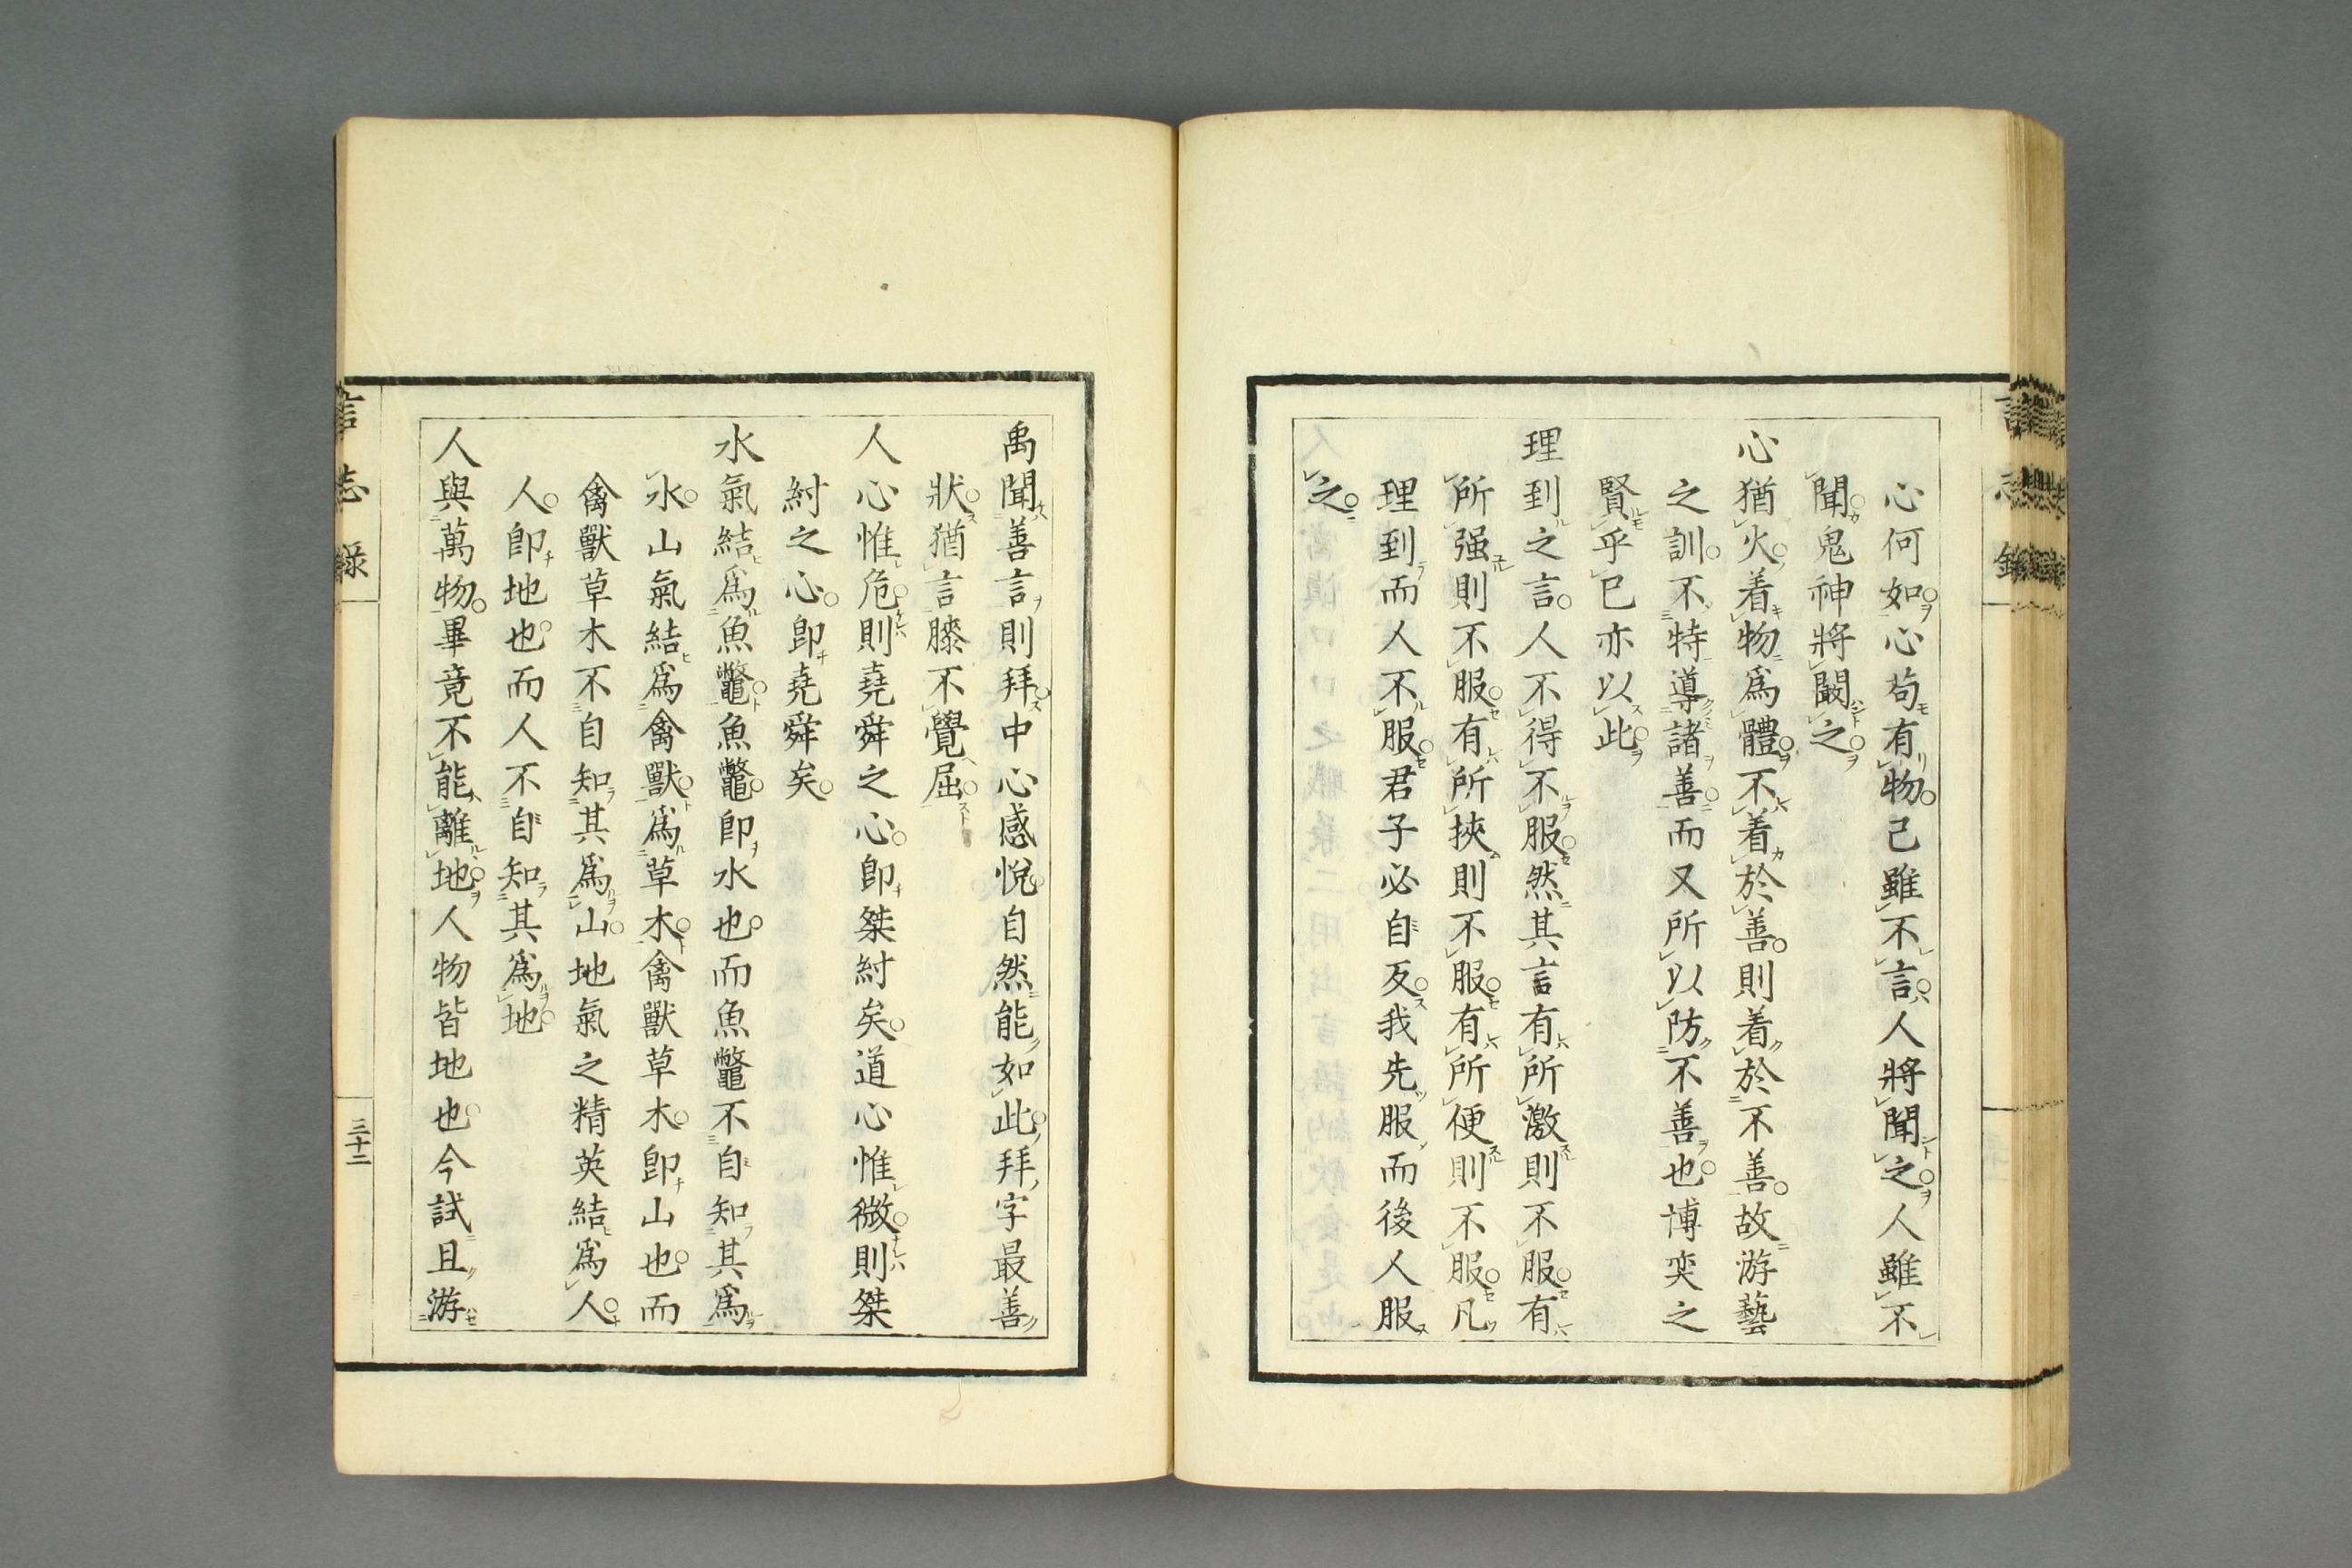 心何如心苟有物己雖不言人將聞之人雖不
聞鬼神將闞之
心猶火着物爲體不着於善則着於不善故游藝
之訓不特導諸善而又所以防不善也博奕之
賢乎已亦以此
理到之言人不得不服然其言有所激則不服有
所强則不服有所挾則不服有所便則不服凡
理到而人不服君子必自反我先服而後人服
之
禹聞善言則拜中心感悅自然能如此拜字最善
狀猶言膝不覺屈
人心惟危則堯舜之心卽桀紂矣道心惟微則桀
紂之心卽堯舜矣
水氣結爲魚鼈魚鼈卽水也而魚鼈不自知其爲
水山氣結爲禽獸爲草木禽獸草木卽山也而
禽獸草木不自知其爲山地氣之精英結爲人
人卽地也而人不自知其爲地
人與萬物畢竟不能離地人物皆地也今試且游
言志錄
三十二